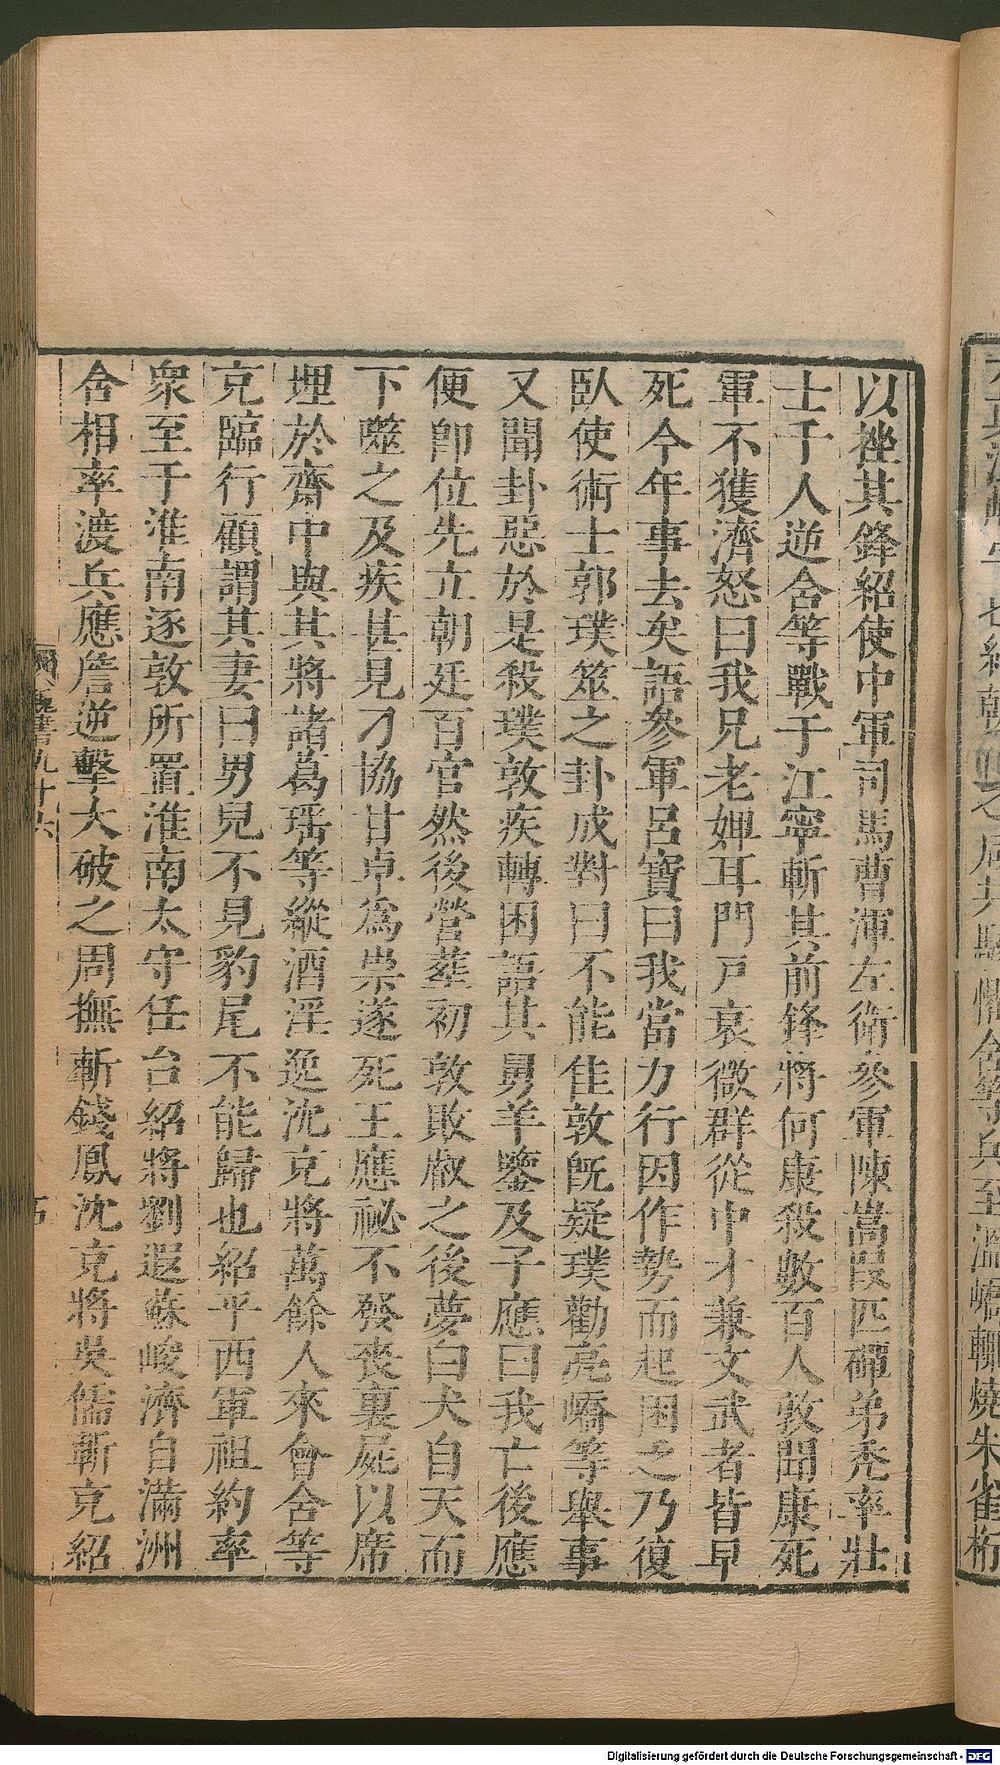 以挫其鋒紹使中軍司馬曹渾左衛參軍陳嵩段匹磾弟禿率壯
士千人逆含等戰于江寧斬其前鋒將何康殺數百人敦聞康死
軍不獲濟怒曰我兄老婢耳門戸衰微群從中才兼文武者皆早
死今年事去矣語參軍呂寶曰我當力行因作勢而起困乏乃復
臥使術士郭璞筮之卦成對曰不能佳敦旣疑璞勸亮嶠等舉事
又聞卦惡於是殺璞敦疾轉困語其舅羊鑒及子應曰我亡後應
便卽位先立朝廷百官然後營葬初敦敗敝之後夢白犬自天而
下噬之及疾甚見刁協甘卓爲祟遂死王應祕不發喪裏屍以席
埋於齋中與其將諸葛瑶等縱酒淫逸沈充將萬餘人來會含等
充臨行顧謂其妻曰男兒不見豹尾不能歸也紹平西軍祖約率
衆至于淮南逐敦所置淮南太守任台紹將劉遐蘇峻濟自滿洲
含相率渡兵應詹逆擊大破之周撫斬錢鳳沈充將吳儒斬充紹
魏書九十六